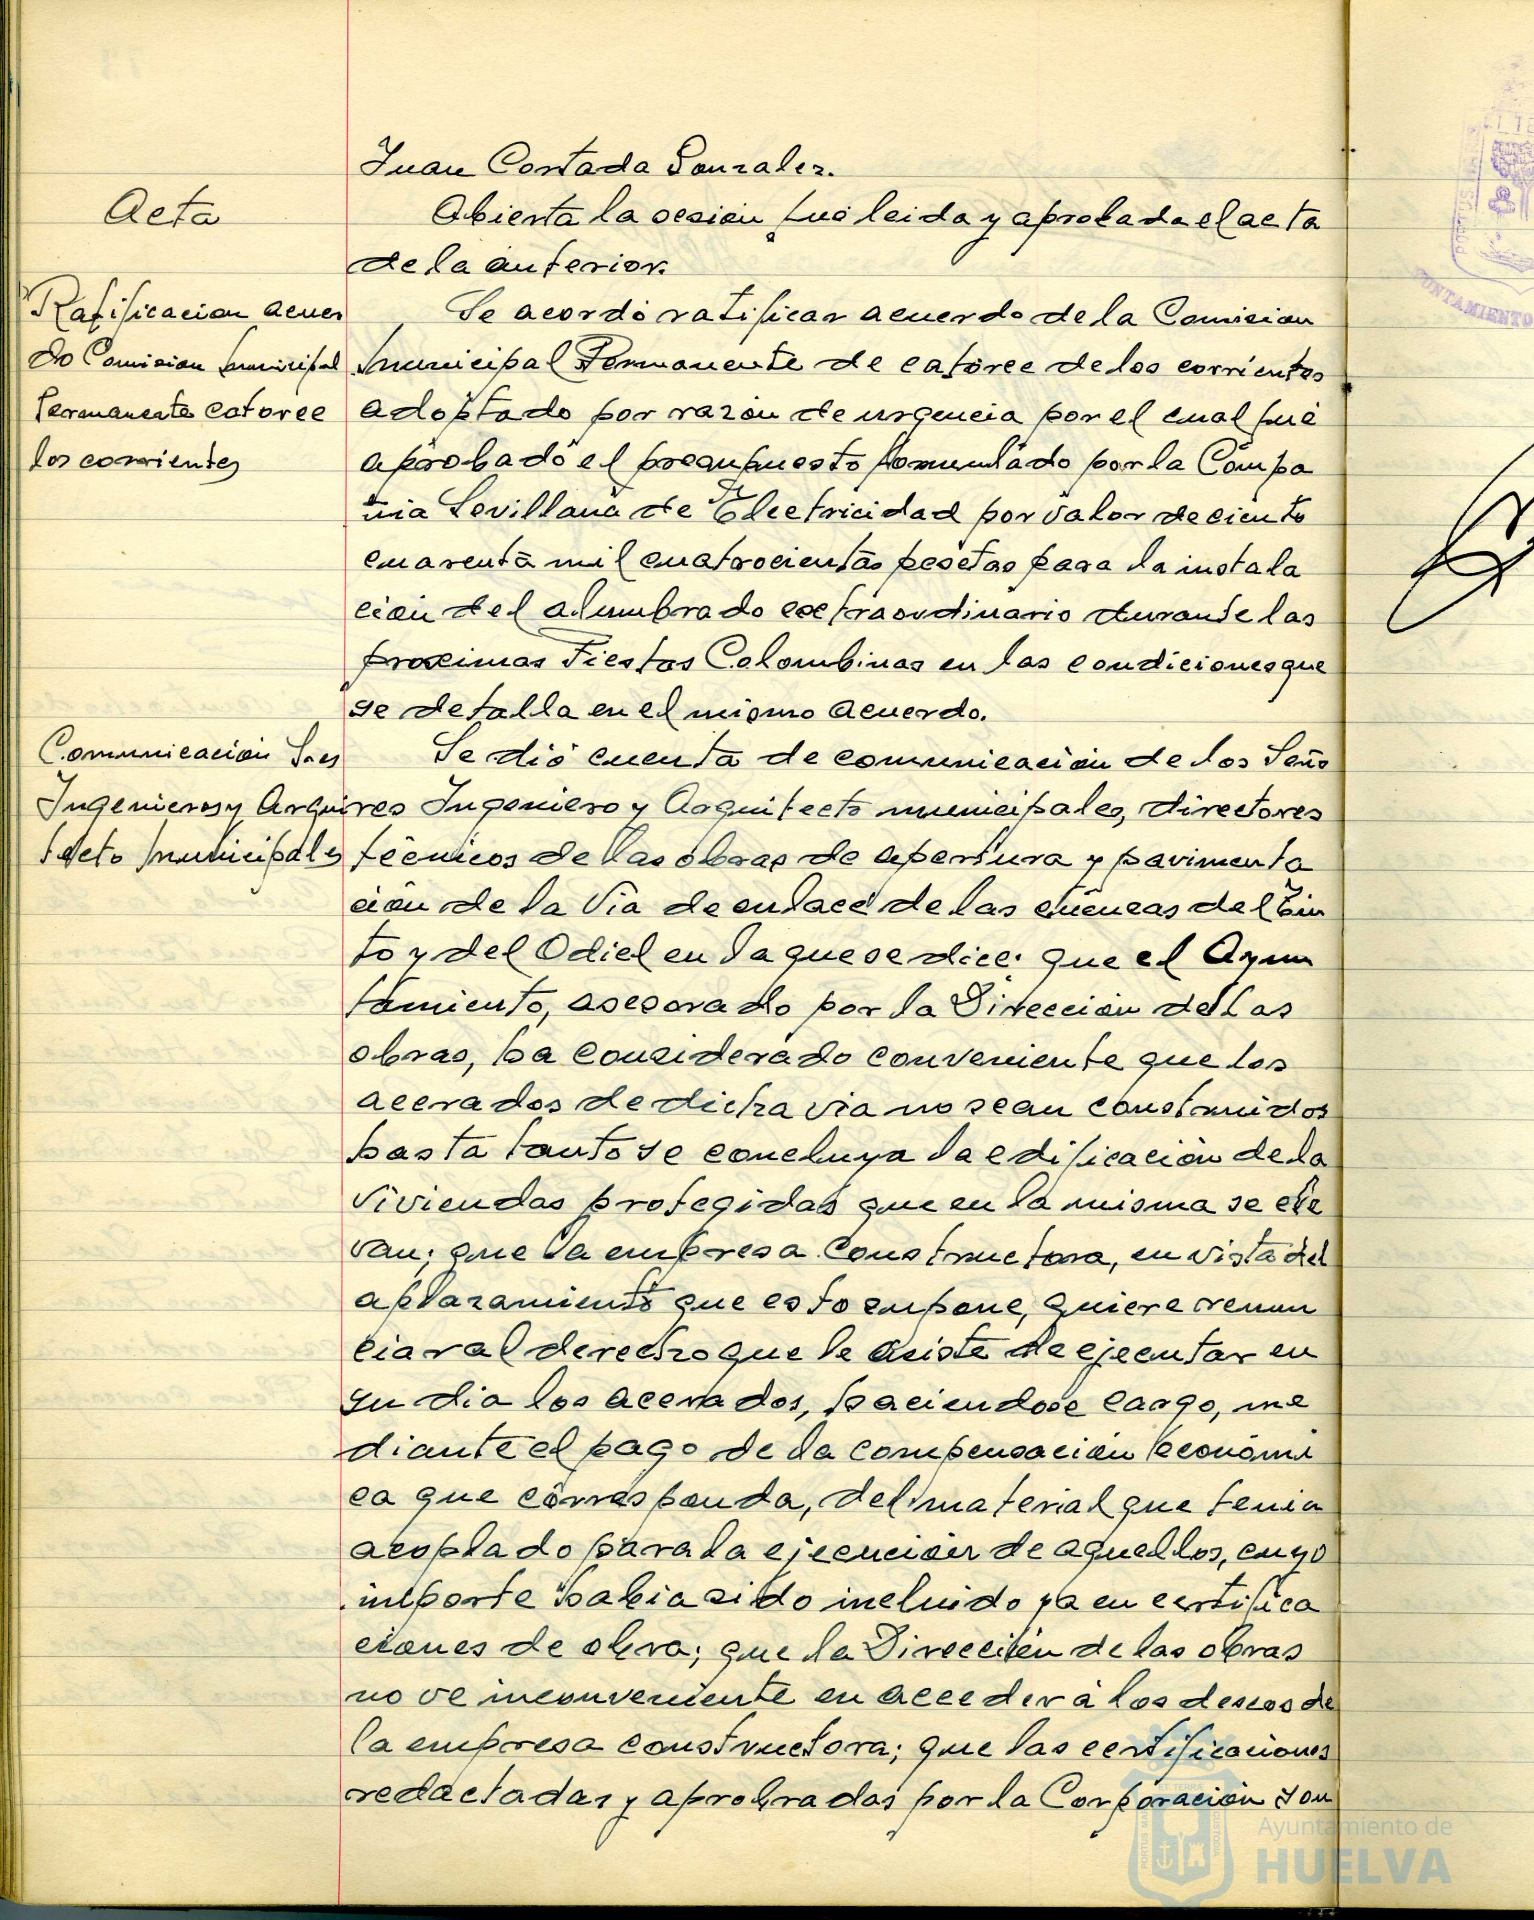 Juan Contada Gonzalez.
Acta
Abierta la sesión fué leida y aprobada el acta
de la anterior.
Ratificacion acuer
do Comision municipal
Permanente catorce
los corrientes
Se acordó ratificar acuerdo de la Comision
municipal Permanente de catorce de los corrientes
adoptado por razón de urgencia por el cual fué
aprobado el presupuesto formulado por la Compa
ñia Sevillana de Electricidad por valor de ciento
cuarenta mil cuatrocientas pesetas para la instala
ción del alumbrado extraordinario durante las
proximas Fiestas Colombinas en las condiciones que
se detalla en el mismo acuerdo.
Comunicación Sres
Ingenieros y Arqui
tecto municipales
Se dió cuenta de comunicación de los Seño
res Ingeniero y Arquitecto municipales, directores
técnicos de las obras de apertura y pavimenta
ción de la Via de enlace de las cuencas del Tin
to y del Odiel en la que se dice: que el Ayun
tamiento, asesorado por la Dirección de las
obras, ha considerado conveniente que los
acerados de dicha via no sean construidos
hasta tanto se concluya la edificación de la
viviendas protegidas que en la misma se ele
van; que la empresa constructora, en vista del
aplazamiento que esto supone, quiere renun
ciar al derecho que le asiste de ejecutar en
su dia los acerados, haciendose cargo, me
diante el pago de la compensación económi
ca que corresponda, del material que tenia
acoplado para la ejecución de aquellos, cuyo
importe habia sido incluido ya en certifica
ciones de obra; que la Dirección de las obras
no ve inconveniente en acceder á los deseos de
la empresa constructora; que las certificaciones
redactadas y aprobradas por la Corporación son
Ayuntamiento de
HUELVA